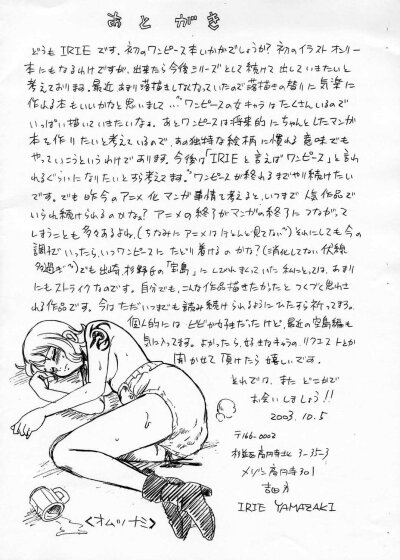 あとがき
どうもIRIEです、初のワンピース本いかがでしょうか?初のイラストオンリー
本にもなるわけですが、出来たら今後シリーズとして続けて出していきたいと
考えております。最近あまり落描きしなくなっていたので落描きの替りに気楽に
作れる本もいいかなと思いまして…ワンピースの女キャラはたくさんいるので
いっぱい描いていきたいなぁ。あとワンピースは将来的にちゃんとしたマンガ
本を作りたいと考えているので、あの独特な絵柄に慣れる意味でも
やっていこうというわけであります。今後は「IRIEと言えばワンピース」と言わ
れるぐらいになりたいとすら考えてます。ワンピースが終わるまでやり続けたい
です。でも昨今のアニメ化マンガ事情を考えると、いつまで人気作品で
いられ続けられるのかな?アニメの終了がマンガの終了につながって
しまうことも多々あるよね。(ちなみにアニメはほとんど見てない)それにしても今の
調子でいったら、いつワンピースにたどり着けるのかな?(消化してない伏線
多過ぎ)でも出崎、杉野氏の「宝島」に
にもストライクなのです。自分でも、こんな作品描きたかったとつくづく思わされ
る作品です。今はただいつまでも読み続けられるようにひたすら祈ってます。
個人的にはビビが好きだったけど、最近の空島編も
気に入ってます。よかったら、好きなキャラのリクエストとか
聞かせて頂けたら嬉しいです。
それでは、またどこかで
お会いしましょう!!
2003.10.5
〒166-0002
杉並区高円寺北3-35-3
メゾン高円寺301
吉田方
IRIE YAMAZAKI
<オムツナミ>